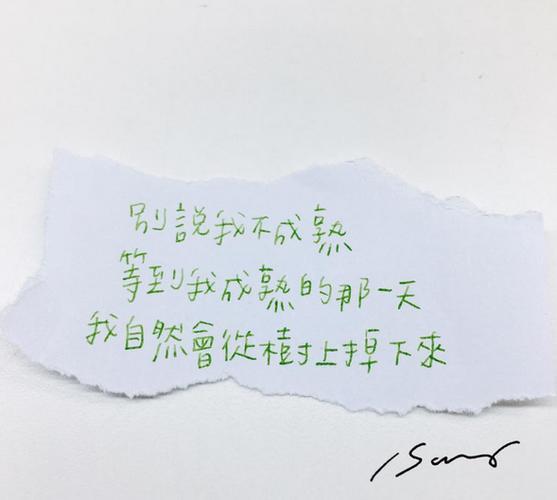 別說我不成熟
等到我成熟的那一天
我自然會從樹上掉下來